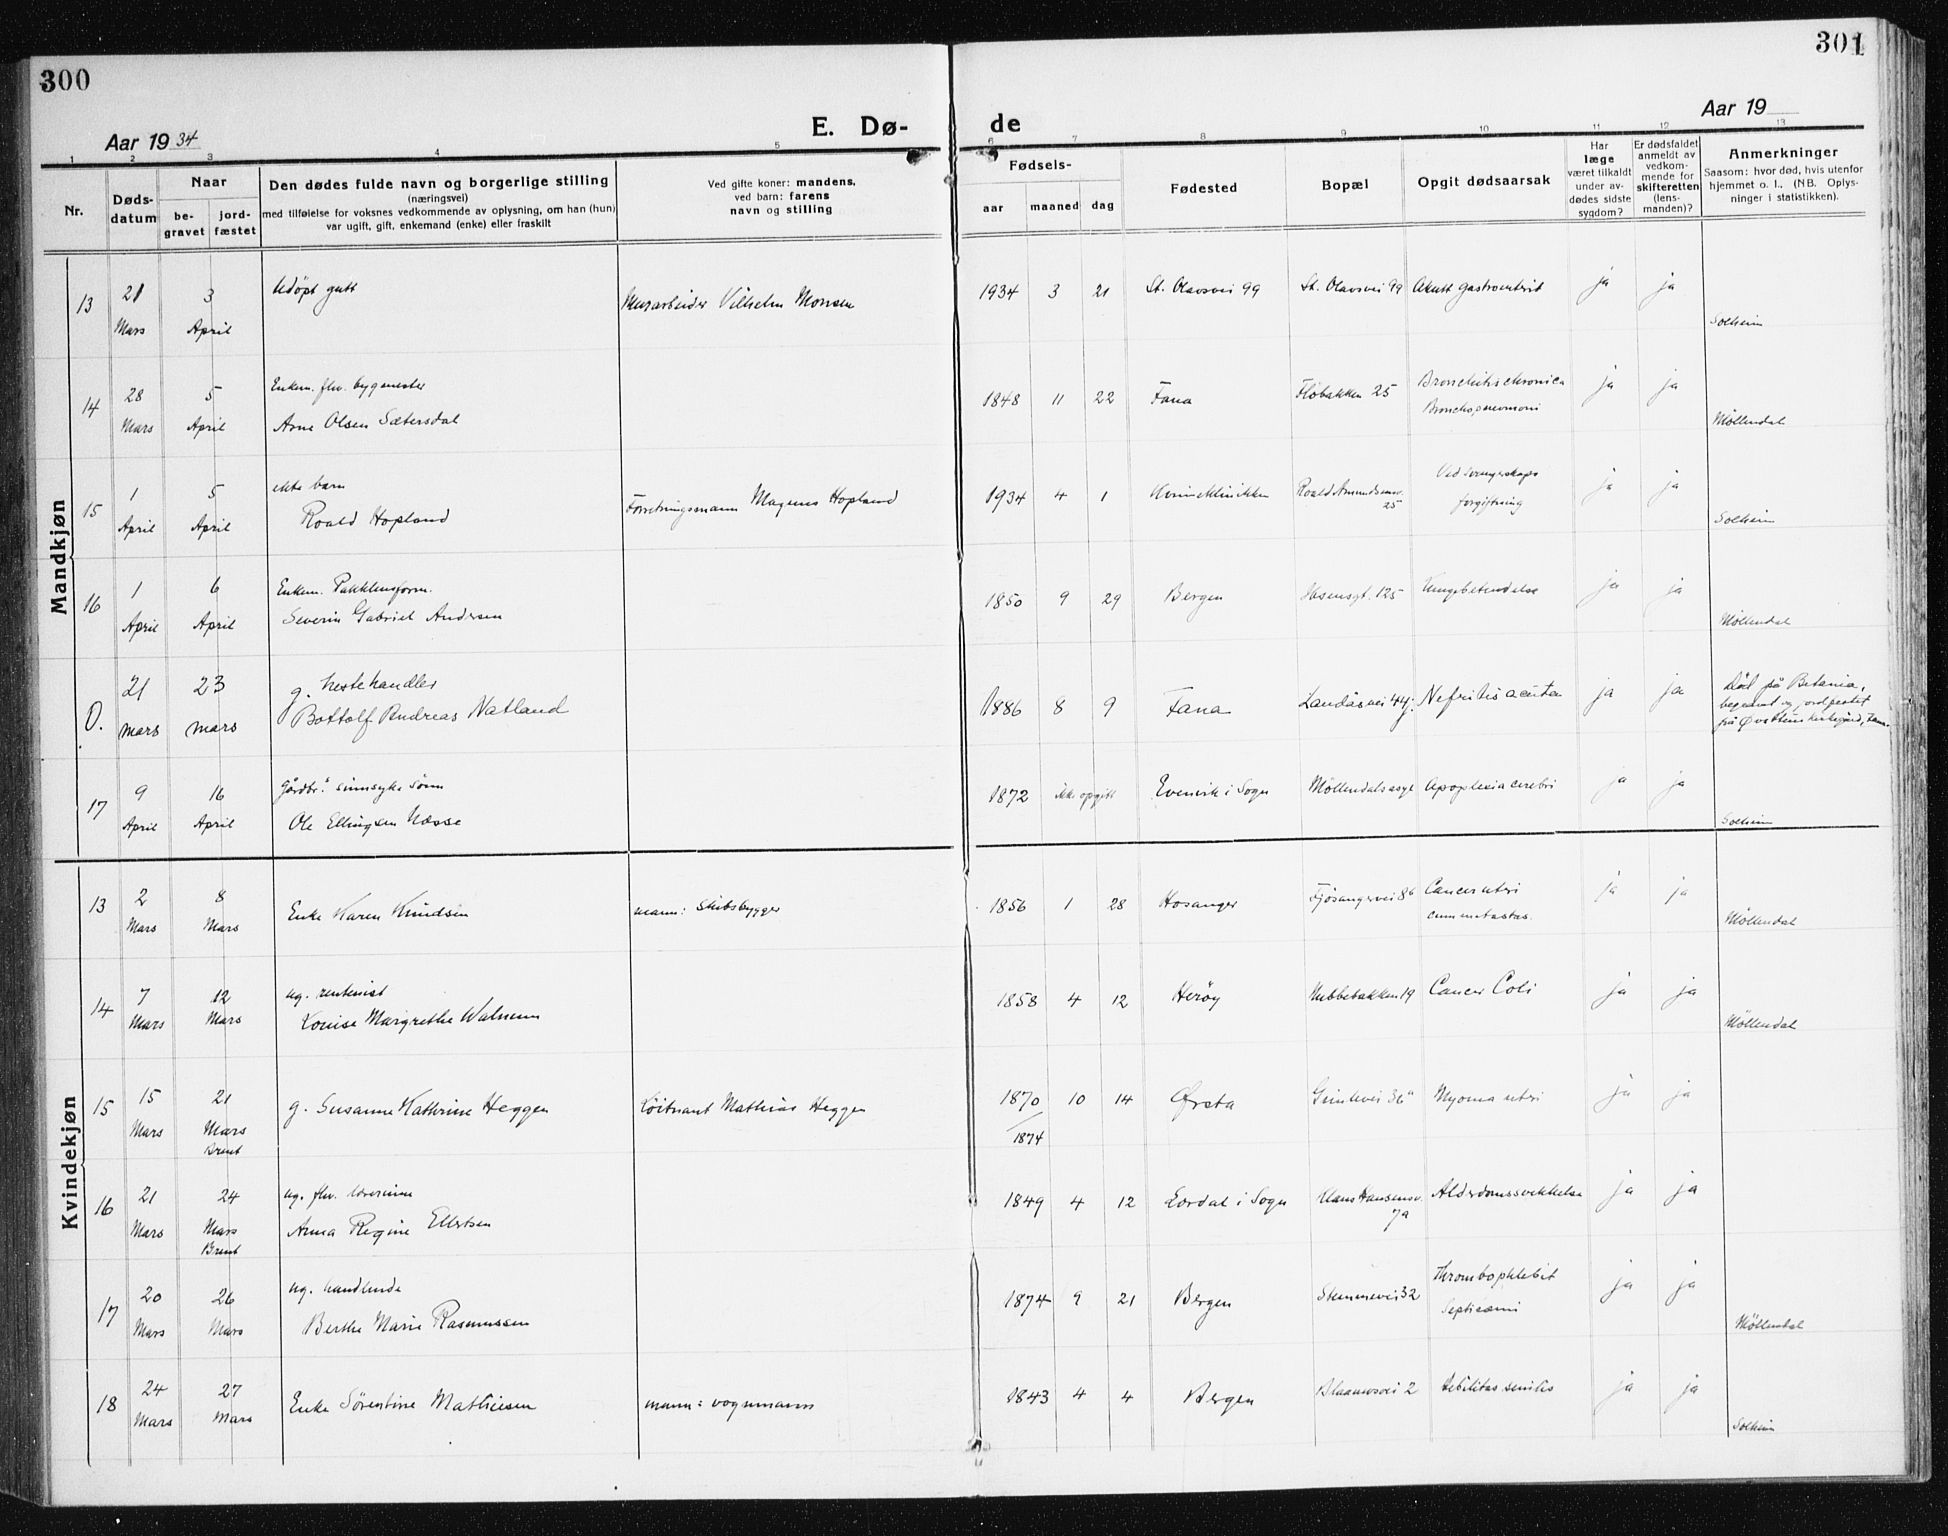 300
301
Aar 1934
E. Dø-
de
Aar 19
1 2 3 4 5 6 7 8 9 10 11 12 13
Nr.
Døds-
datum
Naar
be-
gravet
jord-
fæstet
Den dødes fulde navn og borgerlige stilling
(næringsvei)
med tilføielse for voksnes vedkommende av oplysning, om han (hun)
var ugift, gift, enkemand (enke) eller fraskilt
Ved gifte koner: mandens,
ved barn: farens
navn og stilling
Fødsels-
aar
maaned
dag
Fødested
Bopæl
Opgit dødsaarsak
Har
læge
været tilkaldt
under av-
dødes sidste
sygdom?
Er dødsfaldet
anmeldt av
vedkom-
mende for
skifteretten
(lens-
manden)?
Anmerkninger
Saasom: hvor død, hvis utenfor
hjemmet o. l., (NB. Oplys-
ninger i statistikken).
Mandkjøn
13 21 Mars 3 April
Udöpt gutt
Murarbeider Vilhelm Monsen
1934 3 21 St. Olavsvei 99 St. Olavsvei 99 Akutt gastroenterit ja ja
Solheim
14 28 Mars 5 April
Enkem. fhv. bygmester
Arne Olsen Sætersdal
1848 11 22 Fana Flöbakken 25 Bronchitis chronica
Bronchopneumoni
ja ja
Möllendal
15 1 April 5 April
ekte barn
Roald Hopland
Forretningsmann Magnus Hopland
1934 4 1 Kvinneklinikken Roald Amundsensv.
25
Ved svangerskaps
forgiftning
ja ja
Solheim
16 1 April 6 April
Enkem. Pakkhusform.
Severin Gabriel Andersen
1850 9 29 Bergen Ibsensgt. 125 Lungebetendelse ja ja
Möllendal
0. 21 mars 23 mars
g. hestehandler
Bottolf Andreas Natland
1886 8 9 Fana Landåsvei 44 Nefritis acuta ja ja
Död på Betania,
begravet og jordfestet
på Øvsttun kirkegård, Fana.
17 9 April 16 April
Gårdbr.s sinnsyke sönn
Ole Ellingsen Næsse
1872 ikke opgitt Evenvik i Sogn Möllendal asyl Apoplexia cerebri ja ja
Solheim
Kvindekjøn
13 2 Mars 8 Mars
Enke Karen Knudsen
mann: skibsbygger
1856 1 28 Hosanger Fjösangervei 86 Cancer uteri
cum metastas.
ja ja
Möllendal
14 7 Mars 12 Mars
ug. rentenist
Louise Margrethe Walnum
1858 4 12 Heröy Nubbebakken 19 Cancer Coli ja ja
Möllendal
15 15 Mars 21 Mars
Brent
g. Susanne Kathrine Heggen
Löitnant Mathias Heggen
1870 10 14 Ørsta Myoma uteri ja ja
/1874
16 21 Mars 24 Mars
Brent
ug. fhv. lærerinne
Anna Regine Ellertsen
1849 4 12 Lærdal i Sogn Klaus Hansensv.
7a
Alderdomssvekkelse ja ja
17 20 Mars 26 Mars
ug. handlende
Berthe Marie Rasmussen
1874 9 21 Bergen Stemmevei 32 Thrombophlebit
Septicæmi
ja ja
Möllendal
18 24 Mars 27 Mars
Enke Sörentine Mathiesen
mann: vognmann
1843 4 4 Bergen 2 debilitas senilis ja ja
Solheim